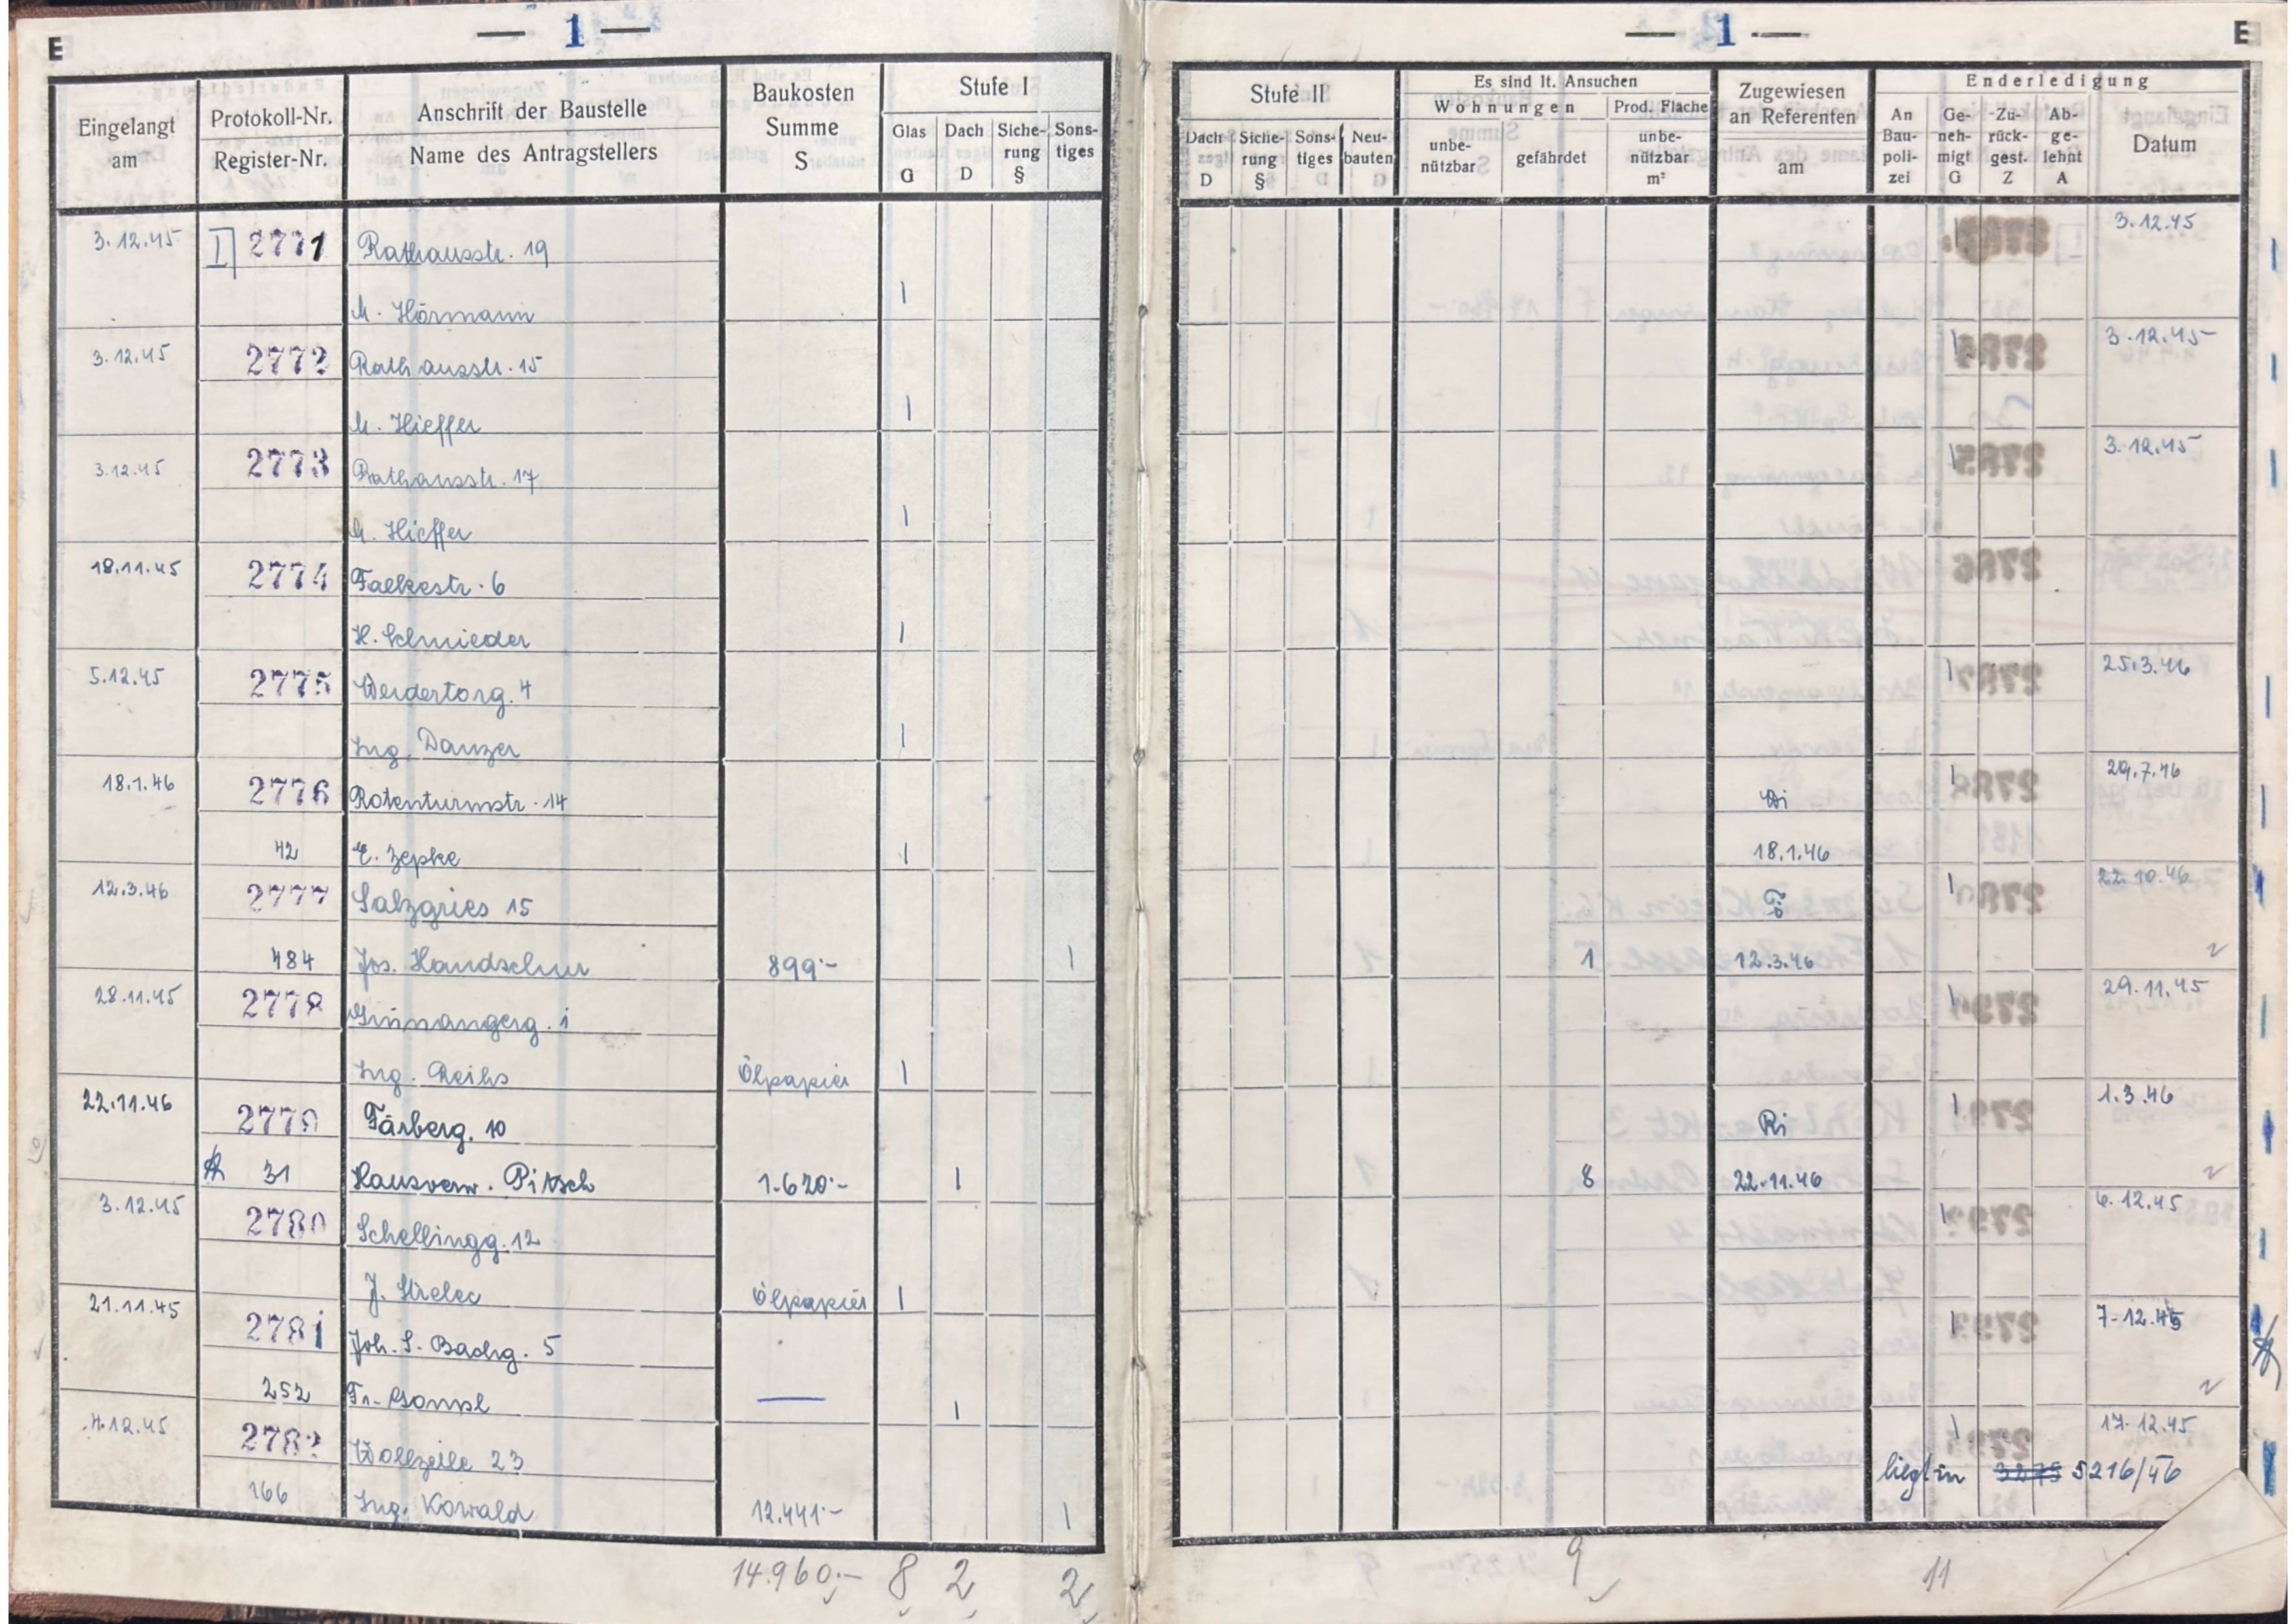 E
— 1 —
Eingelangt am
Protokoll-Nr.
Register-Nr.
Anschrift der Baustelle
Name des Antragstellers
Baukosten Summe S
Stufe I
Glas G
Dach D
Siche-rung §
Sons-tiges
3.12.45 I 2771 Rathausstr. 19
M. Hörmann 1
3.12.45 2772 Rathausstr. 15
M. Hieffer 1
3.12.45 2773 Rathausstr. 17
M. Hieffer 1
18.11.45 2774 Falkestr. 6
H. Schmieder 1
5.12.45 2775 Werdertorg. 4
Ing. Danzer 1
18.1.46 2776 Rotenturmstr. 14
42 E. Zepke 1
12.3.46 2777 Salzgries 15
484 Jos. Handschur 899.- 1
28.11.45 2778 Grünangerg. 1
Ing. Reihs Ölpapier 1
22.11.46 2779 Färberg. 10
31 Hausverw. Pitsch 1.620.- 1
3.12.45 2780 Schellingg. 12
J. Strelec Ölpapier 1
21.11.45 2781 Joh. S. Bachg. 5
252 Fr. — 1
4.12.45 2782 Wollzeile 23
166 Ing. Kowald 12.441.- 1
14.960.- 8 2 2
— 1 —
E
Stufe II
Dach D
Siche-rung §
Sons-tiges
Neu-bauten
Es sind lt. Ansuchen
Wohnungen
unbe-nützbar
gefährdet
Prod. Fläche
unbe-nützbar m²
Zugewiesen an Referenten am
Enderledigung
An Bau-poli-zei
Ge-neh-migt G
Zu-rück-gest. Z
Ab-ge-lehnt A
Datum
3.12.45
1 3.12.45
1 3.12.45
1 25.3.46
1 29.7.46
18.1.46
1 22.10.46
1 12.3.46
1 29.11.45
Ri 1 1.3.46
8 22.11.46
1 6.12.45
1 7.12.45
1 17.12.45
liegt in 3275 5216/46
9 11